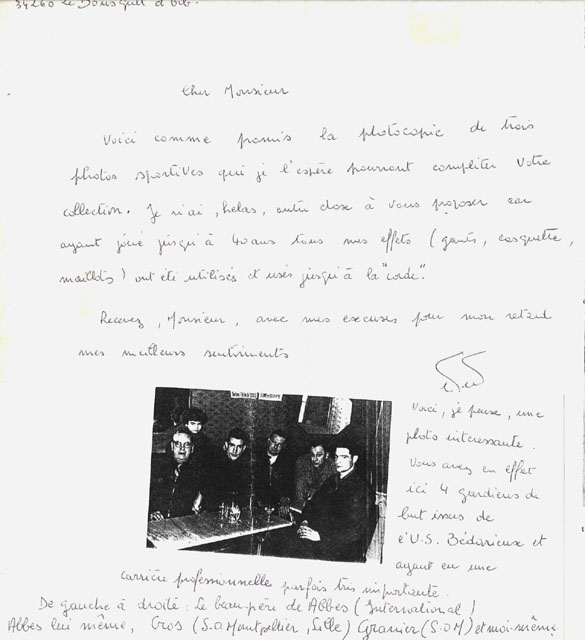 34260 Le Bousquet d'Orb.
Cher Monsieur
Voici comme promis la photocopie de trois
photos sportives qui je l'espère pourront compléter votre
collection. Je n'ai, hélas, autre chose à vous proposer car
ayant joué jusqu'à 40 ans tous mes effets (gants, casquette,
maillots) ont été utilisés et usés jusqu'à la "corde".
Recevez, Monsieur, avec mes excuses pour mon retard
mes meilleurs sentiments
Voici, je pense, une
photo intéressante.
Vous avez en effet
ici 4 gardiens de
but issus de
l'U.S. Bédarieux et
ayant eu une
carrière professionnelle parfois très importante.
De gauche à droite : Le beau-père de Abbes (International !
Abbes lui même, Cros (S.O Montpellier, Lille) Granier (S.O M) et moi-même